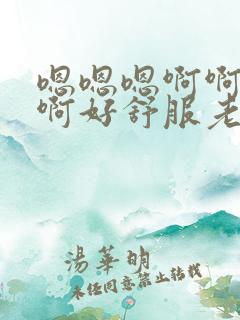 嗯嗯嗯啊啊
啊好舒服老
湯華明
未经同意禁止转载